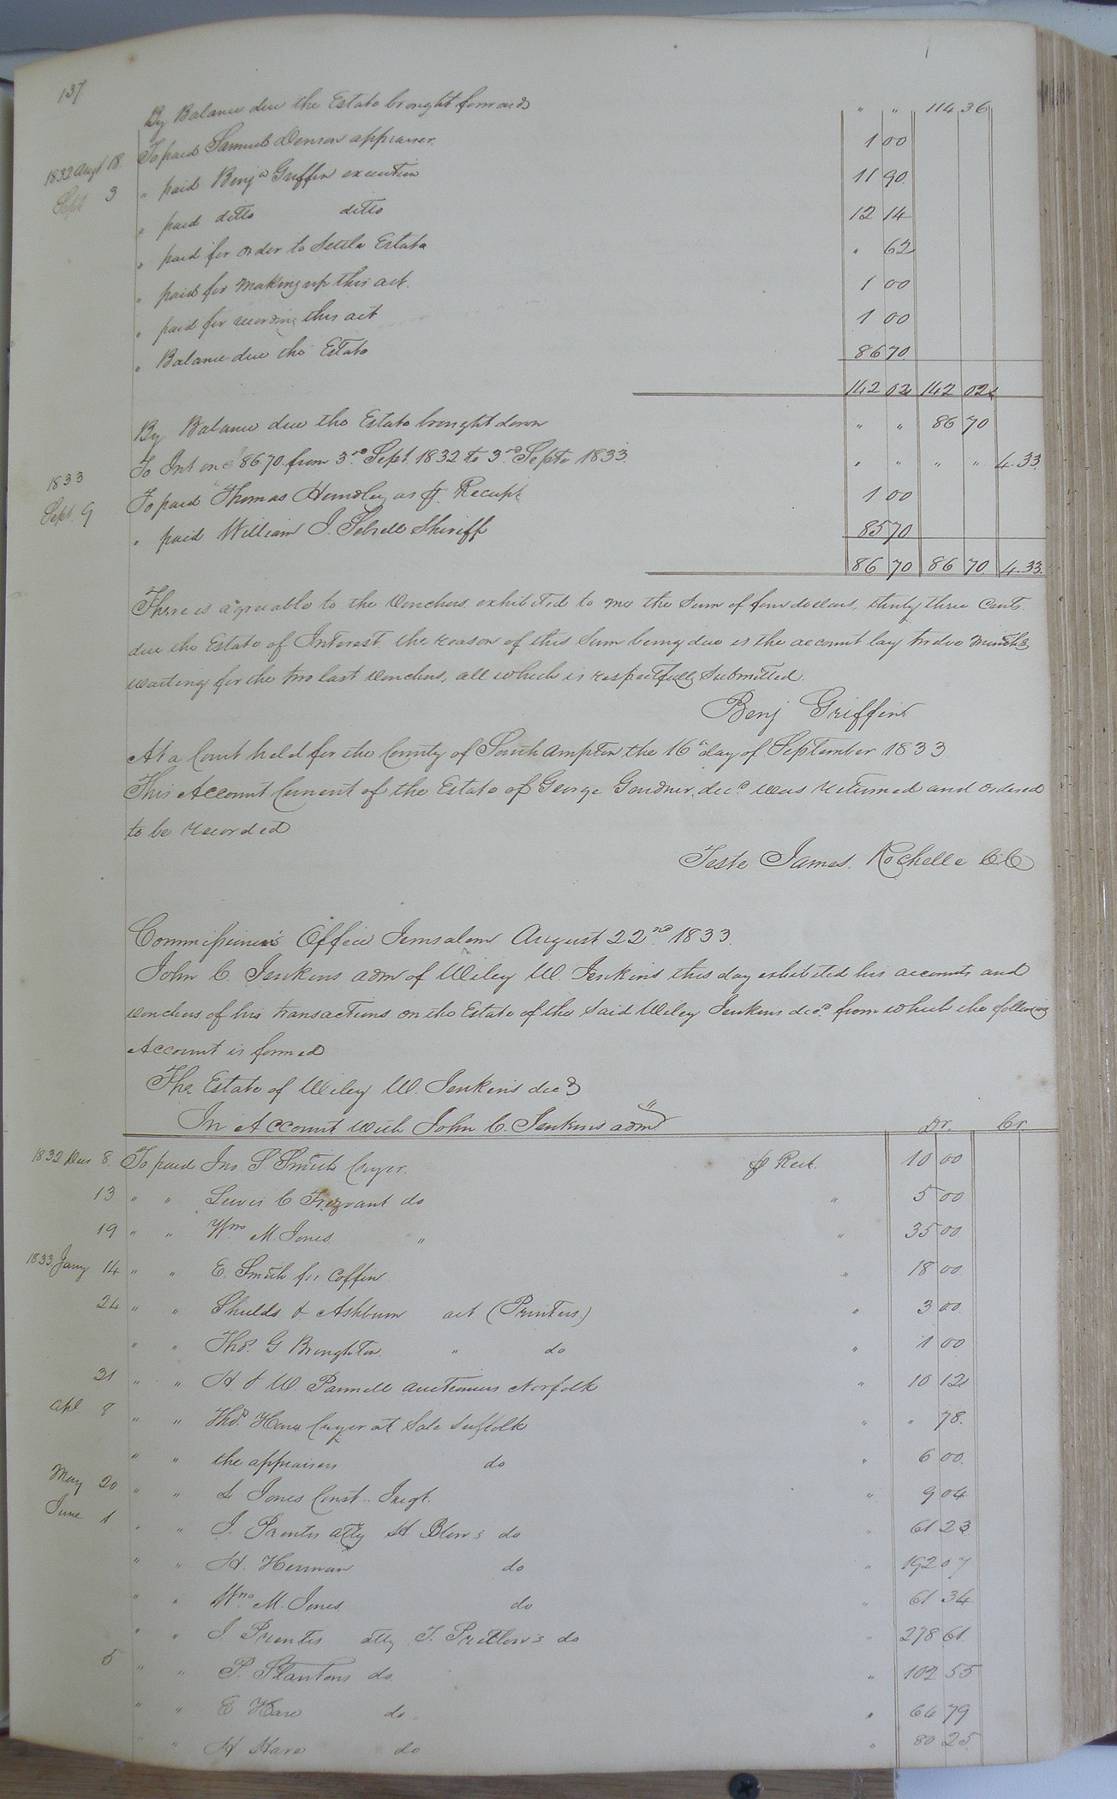 137
By Balance due the Estate brought forward " " 114 36
1832 Augt 18 To paid Samuel Denson appraiser 1 00
Sept 3 " paid Benja Griffin execution 11 90
" paid ditto ditto 12 14
" paid for order to settle Estate " 62
" paid for making up this act. 1 00
" paid for recording this act 1 00
" Balance due the Estate 86 70
142 02 142 02
By Balance due the Estate brought down " " 86 70
1833 To Int on $86.70 from 3rd Sept. 1832 to 3rd Septr 1833 " " " " 4.33
Sept. 9 To paid Thomas Hundley as pr. Receipt 1 00
" paid William J. Sebrell Sheriff 85 70
86 70 86 70 4.33
There is agreeable to the Vouchers exhibited to me the Sum of four dollars, thirty three Cents.
due the Estate of Interest the reason of this Sum being due is the account lay twelve Months
waiting for the two last vouchers, all which is respectfully Submitted.
Benj Griffin
At a Court held for the County of Southampton the 16th day of September 1833
This Account Current of the Estate of George Gardner, decd was returned and ordered
to be recorded
Teste James Rochelle CC
Commissioner's Office Jerusalem August 22nd 1833.
John C. Jenkins adm of Wiley W Jenkins this day exhibited his accounts and
vouchers of his transactions on the Estate of the Said Wiley Jenkins decd from which the following
Account is formed
The Estate of Wiley W. Jenkins decd
In Account with John C. Jenkins admr Dr. Cr.
1832 Decr 8 To paid Jno S Smith Cryer. pr Rect. 10 00
13 " " Lewis C Trezvant do " 5 00
19 " " Wm M Jones " " 35 00
1833 Jany 14 " " E. Smith for Coffin " 18 00
24 " " Shields & Ashburn act (Printers) " 3 00
" " Thos. G Broughton " do " 1 00
31 " " H & W. Pannell auctioneers Norfolk " 10 12
Apl 8 " " Thos. Hare Cryer at Sale Suffolk " " 78
" " the appraisers do " 6 00
May 20 " " L Jones Const.. Judgt. " 9 04
June 1 " " J. Prentis atty H. Blow's do " 61 23
" " H. Herman do " 192 07
" " Wm. M. Jones do " 61 34
" " J. Prentis atty T. Pretlow's do " 278 61
5 " " P. Stantons do " 102 55
" " E Hare do " 64 79
" " H Hare do " 80 25